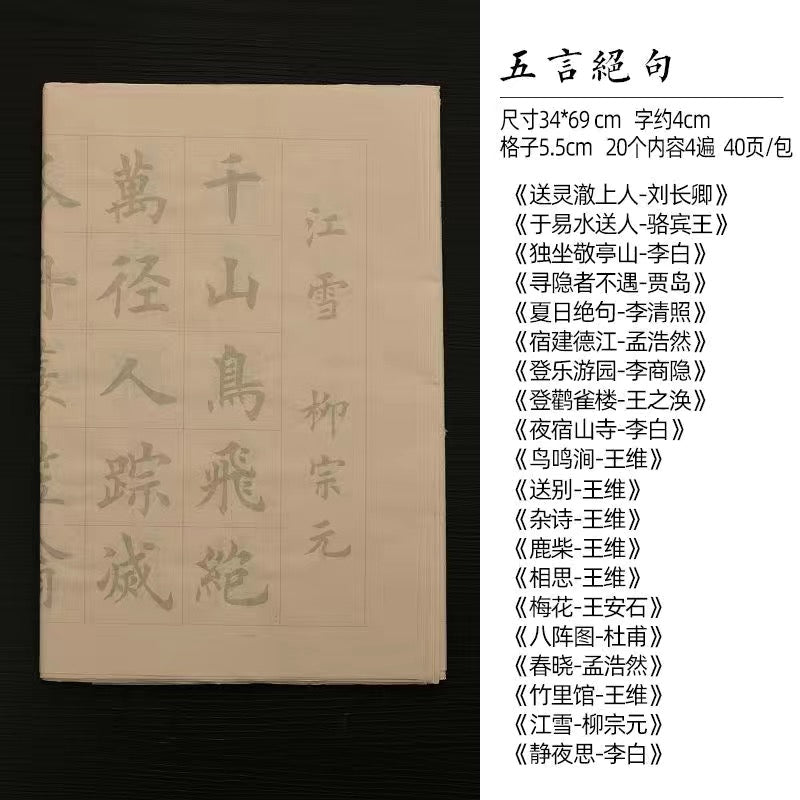 江雪 柳宗元
千山鳥飛絶
萬径人踪滅
五言絕句
尺寸34*69 cm 字约4cm
格子5.5cm 20个内容4遍 40页/包
《送灵澈上人-刘长卿》
《于易水送人-骆宾王》
《独坐敬亭山-李白》
《寻隐者不遇-贾岛》
《夏日绝句-李清照》
《宿建德江-孟浩然》
《登乐游园-李商隐》
《登鹳雀楼-王之涣》
《夜宿山寺-李白》
《鸟鸣涧-王维》
《送别-王维》
《杂诗-王维》
《鹿柴-王维》
《相思-王维》
《梅花-王安石》
《八阵图-杜甫》
《春晓-孟浩然》
《竹里馆-王维》
《江雪-柳宗元》
《静夜思-李白》